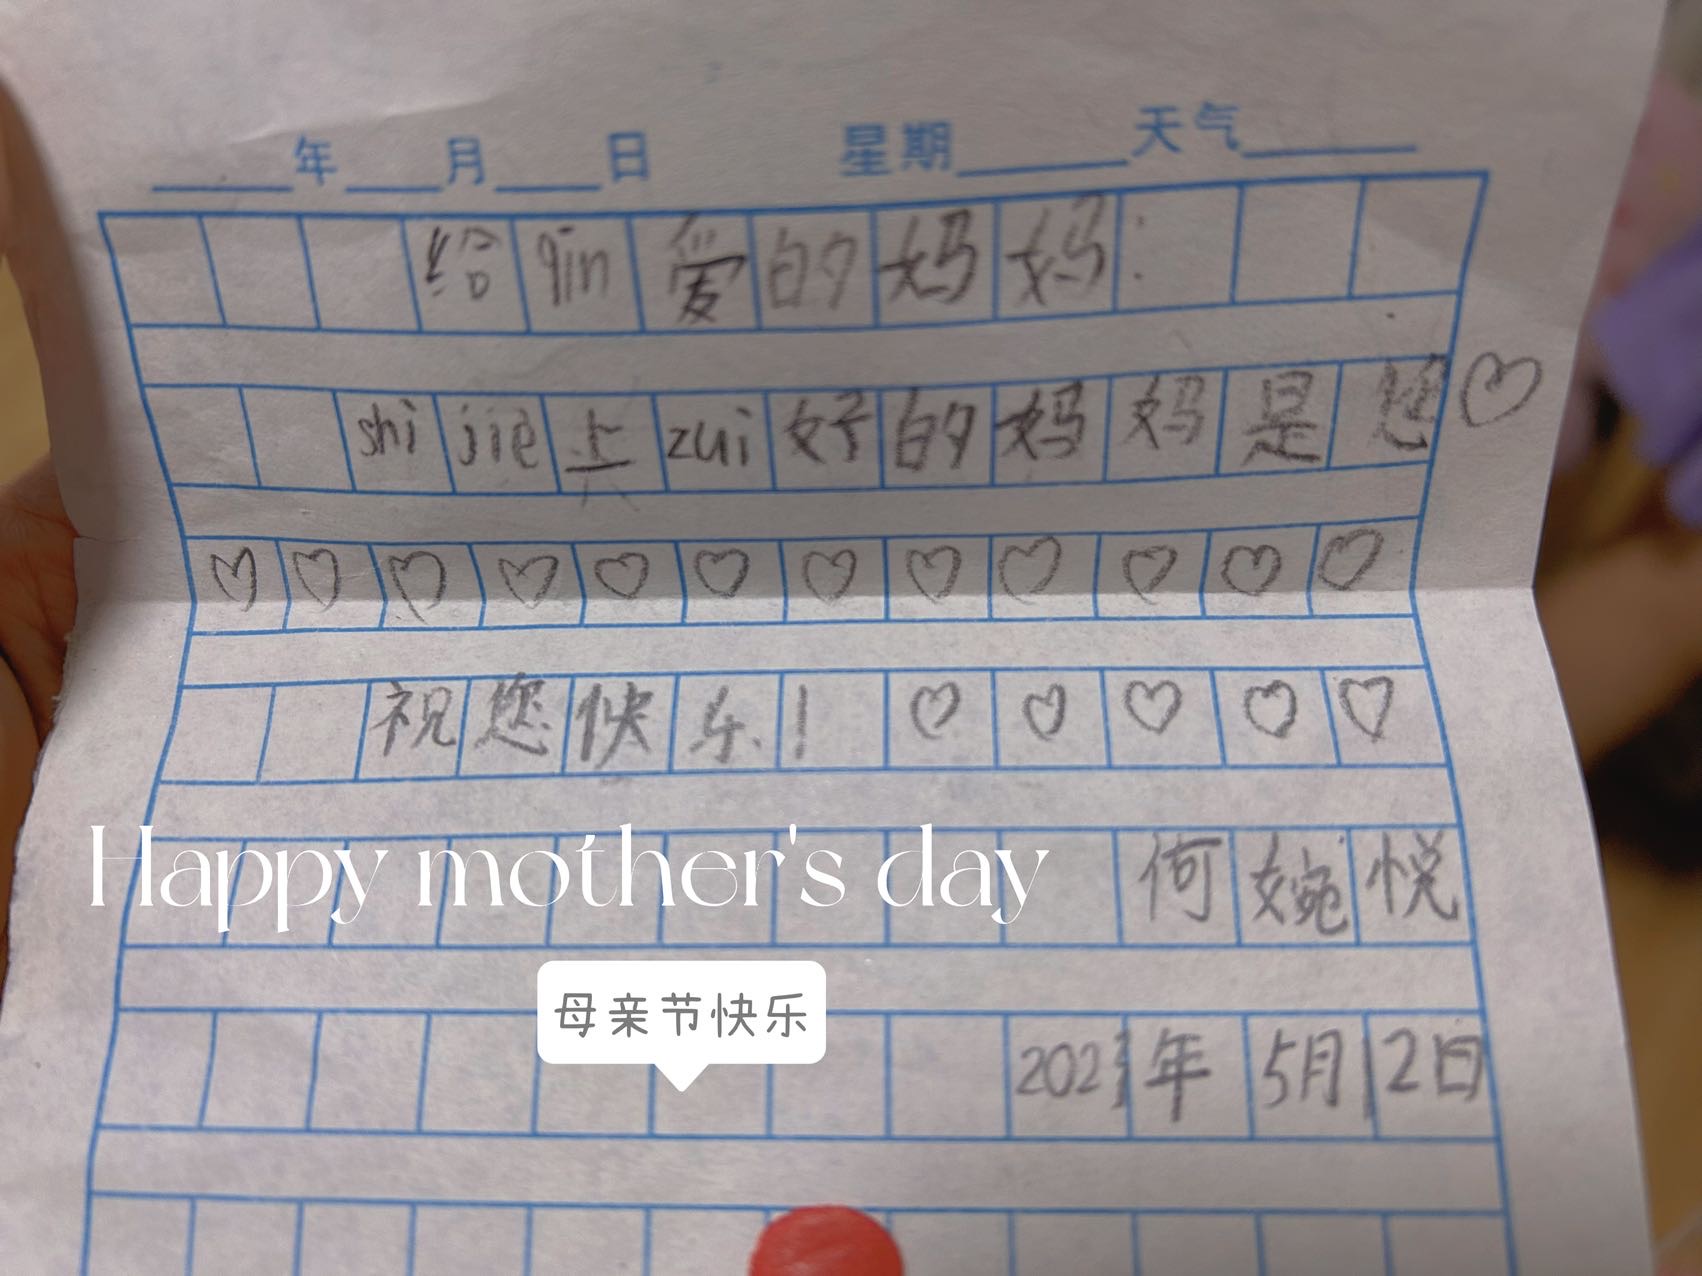 年 月 日 星期 天气
给qin爱的妈妈：
shi jie上zui好的妈妈是您♡
♡♡♡♡♡♡♡♡♡♡♡♡
祝您快乐！♡♡♡♡♡
Happy mother's day
何婉悦
母亲节快乐
年5月12日